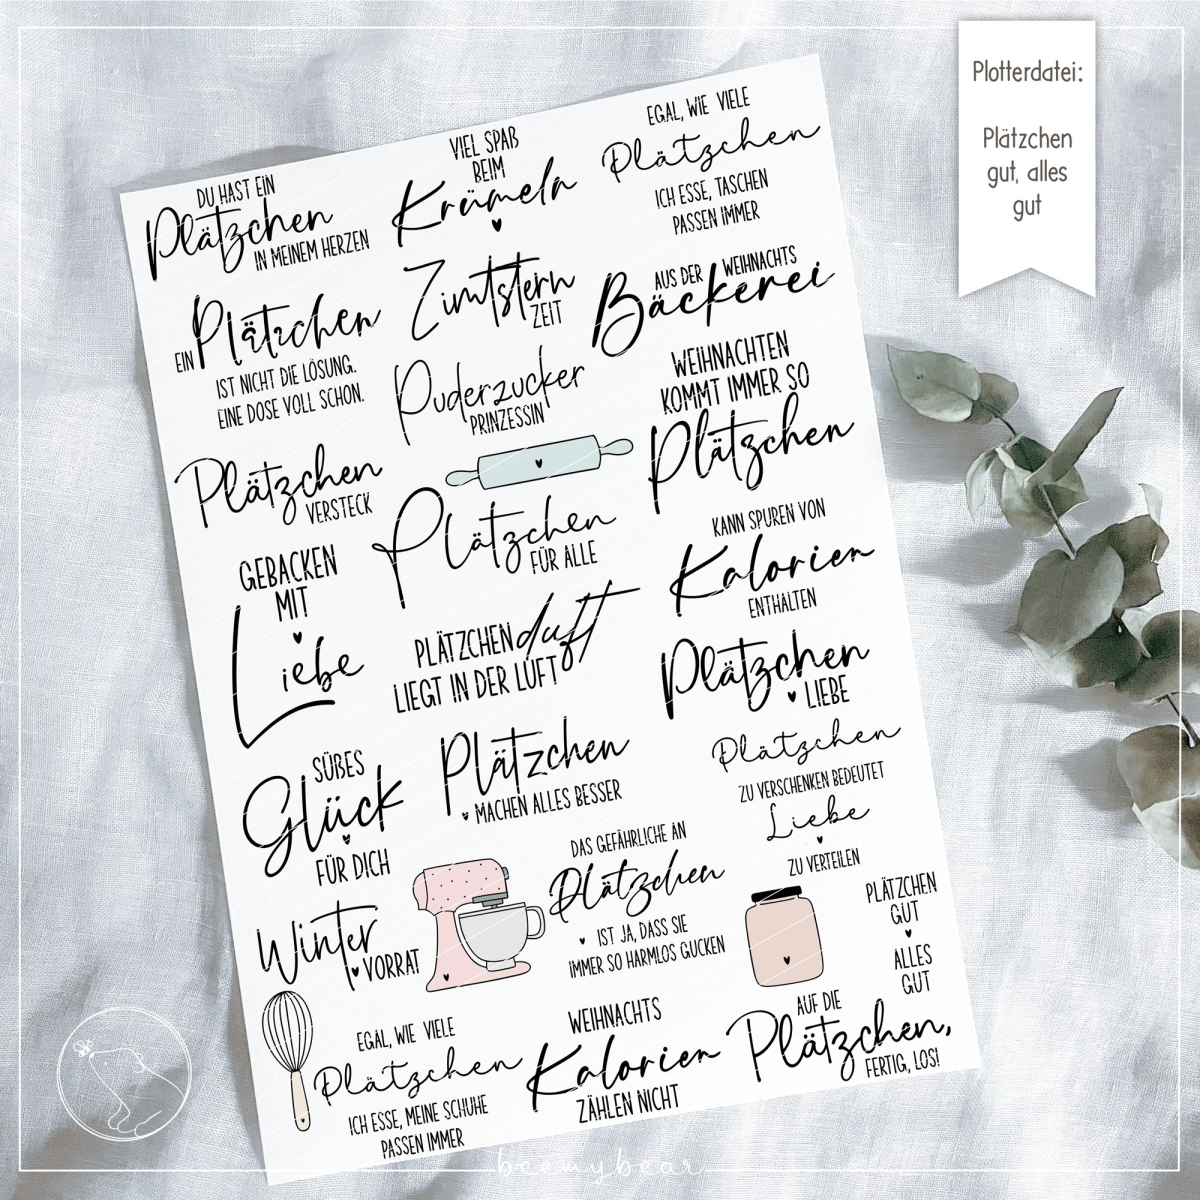 Plotterdatei:
Plätzchen
gut, alles
gut
DU HAST EIN
Plätzchen
IN MEINEM HERZEN
VIEL SPAß
BEIM
Krümeln
EGAL, WIE VIELE
Plätzchen
ICH ESSE, TASCHEN
PASSEN IMMER
EIN Plätzchen
IST NICHT DIE LÖSUNG.
EINE DOSE VOLL SCHON.
Zimtstern
ZEIT
AUS DER WEIHNACHTS
Bäckerei
Puderzucker
PRINZESSIN
WEIHNACHTEN
KOMMT IMMER SO
Plätzchen
Plätzchen
VERSTECK
Plätzchen
FÜR ALLE
KANN SPUREN VON
Kalorien
ENTHALTEN
GEBACKEN
MIT
Liebe
PLÄTZCHENduft
LIEGT IN DER LUFT
Plätzchen
LIEBE
SÜßES
Glück
FÜR DICH
Plätzchen
MACHEN ALLES BESSER
Plätzchen
ZU VERSCHENKEN BEDEUTET
Liebe
ZU VERTEILEN
Winter
VORRAT
DAS GEFÄHRLICHE AN
Plätzchen
IST JA, DASS SIE
IMMER SO HARMLOS GUCKEN
PLÄTZCHEN
GUT
ALLES
GUT
EGAL, WIE VIELE
Plätzchen
ICH ESSE, MEINE SCHUHE
PASSEN IMMER
WEIHNACHTS
Kalorien
ZÄHLEN NICHT
AUF DIE
Plätzchen,
FERTIG, LOS!
beemybear